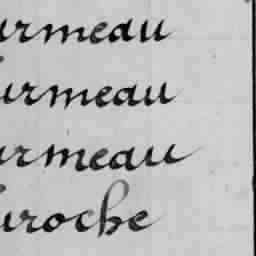 urmeau
urmeau
urmeau
uroche